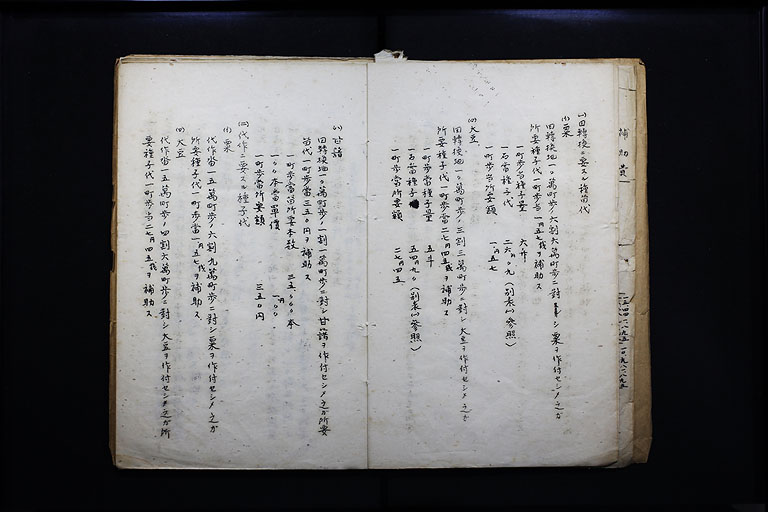 補助費
(一)田轉換ニ要スル種苗代
(イ)粟
田轉換地一〇萬町歩ノ六割六萬町歩ニ對シ粟ヲ作付セシメ之ガ
所要種子代一町歩当一円五七錢ヲ補助ス
一町歩当種子量 六升
一石当種子代 二六円〇九(別表(一)参照)
一町歩当所要額 一円五七
(ロ)大豆
田轉換地一〇萬町歩ノ三割三萬町歩ニ對シ大豆ヲ作付セシメ之ガ
所要種子代一町歩當二七円四五錢ヲ補助ス
一町歩當種子量 五斗
一石當種子 五四円九〇(別表(一)参照)
一町歩當所要額 二七円四五
(ハ)甘藷
田轉換地一〇萬町歩ノ一割一萬町歩ニ對シ甘藷ヲ作付セシメ之ガ所要
苗代一町歩當三五〇円ヲ補助ス
一町歩當苗所要本数 三五、〇〇〇本
一〇〇本當單價 一円〇〇
一町歩當所要額 三五〇円
(二)代作ニ要スル種子代
(イ)粟
代作當一五萬町歩ノ六割九萬町歩ニ對シ粟ヲ作付セシメ之ガ
所要種子代一町歩當一円五七錢ヲ補助ス
(ロ)大豆
代作當一五萬町歩ノ四割六萬町歩ニ對シ大豆ヲ作付セシメ之ガ所
要種子代一町歩当二七円四五錢ヲ補助ス